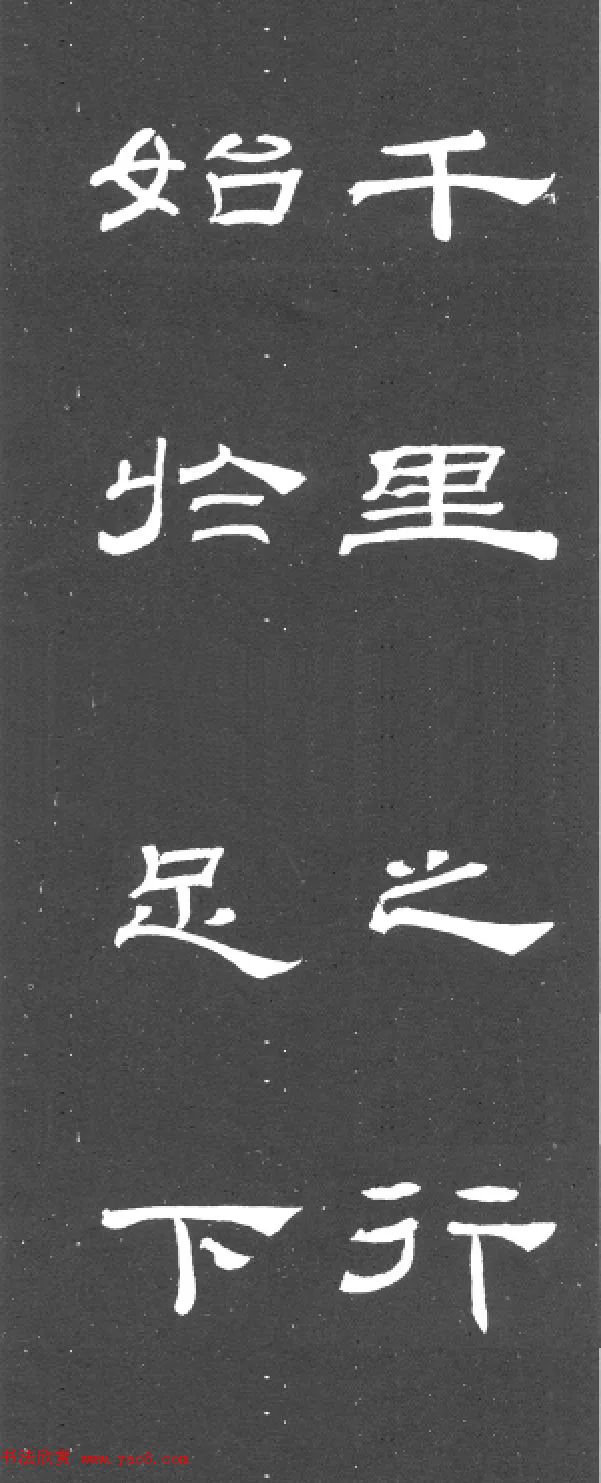 千里之行
始於足下
书法欣赏 www.yac8.com